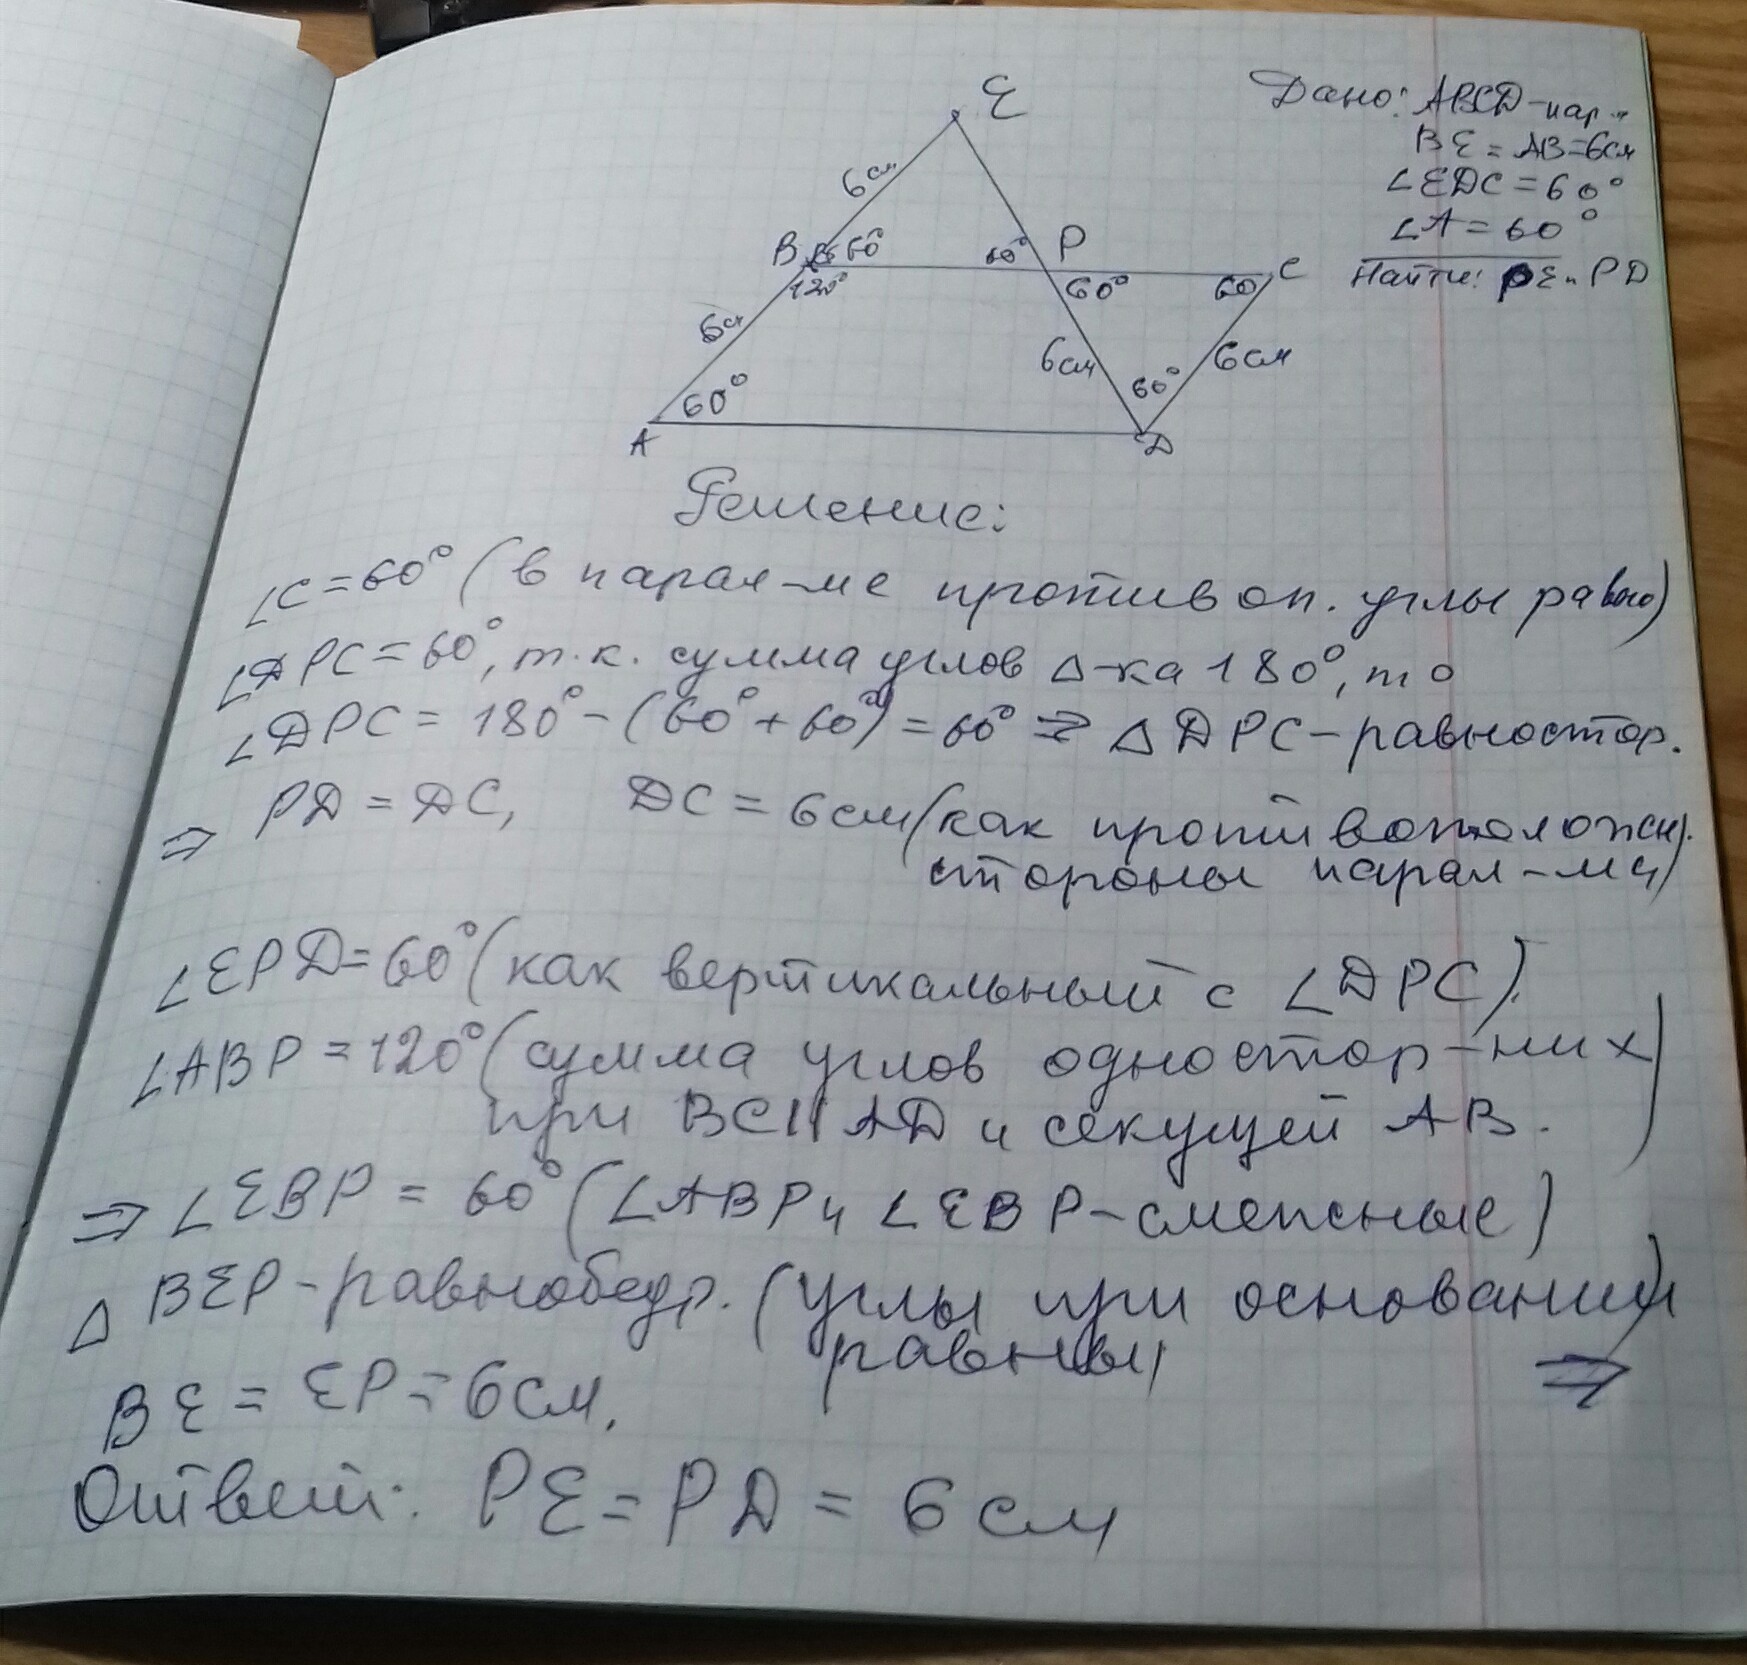 E
Дано: ABCD-пар.
BE = AB=6см
∠EDC = 60°
∠A = 60°
Найти: PE и PD
6см
B 60° 60° P C
120° 60° 60
6см 6см 60° 6см
60°
A D
Решение:
∠C = 60° (в парал-ме противоп. углы равны)
∠DPC = 60°, т.к. сумма углов Δ-ка 180°, то
∠DPC = 180° - (60° + 60°) = 60° ⇒ Δ DPC - равностор.
⇒ PD = DC, DC = 6см (как противоположн.
стороны парал-ма)
∠EPD = 60° (как вертикальный с ∠DPC).
∠ABP = 120° (сумма углов одностор-них
при BC || AD и секущей AB.)
⇒ ∠EBP = 60° (∠ABP и ∠EBP - смежные)
Δ BEP - равнобедр. (углы при основании
равны) ⇒
BE = EP = 6см.
Ответ: PE = PD = 6 см